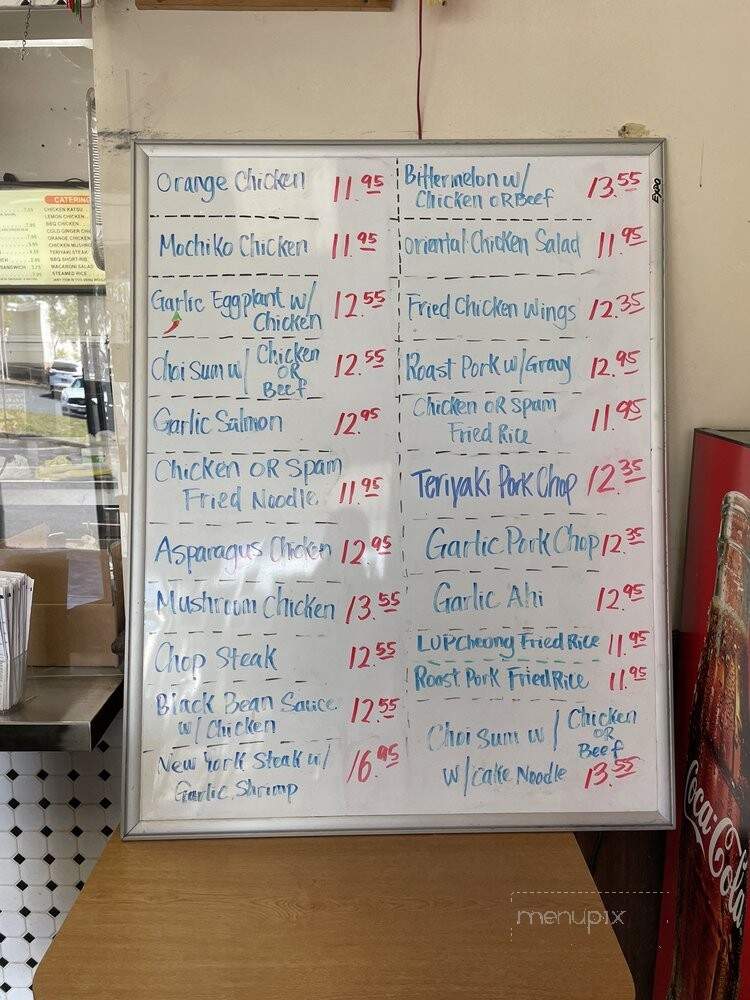 Orange Chicken 11.95
Mochiko Chicken 11.95
Garlic Eggplant w/
Chicken 12.55
Choi Sum w/ Chicken
OR
Beef 12.55
Garlic Salmon 12.95
Chicken OR Spam
Fried Noodle 11.95
Asparagus Chicken 12.95
Mushroom Chicken 13.55
Chop Steak 12.55
Black Bean Sauce
w/ Chicken 12.55
New York Steak w/
Garlic Shrimp 16.95
Bittermelon w/
Chicken OR Beef 13.55
EXPO
Oriental Chicken Salad 11.95
Fried Chicken Wings 12.35
Roast Pork w/ Gravy 12.95
Chicken OR Spam
Fried Rice 11.95
Teriyaki Pork Chop 12.35
Garlic Pork Chop 12.35
Garlic Ahi 12.95
LUP Cheong Fried Rice 11.95
Roast Pork Fried Rice 11.95
Choi Sum w/ Chicken
OR
Beef
w/ Cake Noodle 13.55
CATERING
CHICKEN KATSU
LEMON CHICKEN
BBQ CHICKEN
COLD GINGER CHI
ORANGE CHICKEN
CHICKEN MUSHRO
TERIYAKI STEAK
BBQ SHORT-RIB
MACARONI SALAD
STEAMED RICE
Coca-Cola
menupix